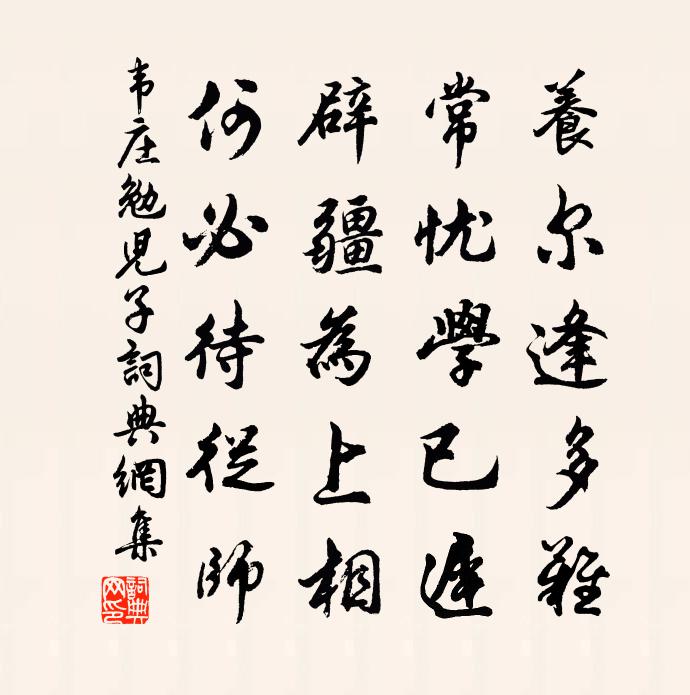 養尔逢多難
常忧學已遲
辟疆為上相
何必待從師
韦庄勉兒子詞典網集
詞典網印